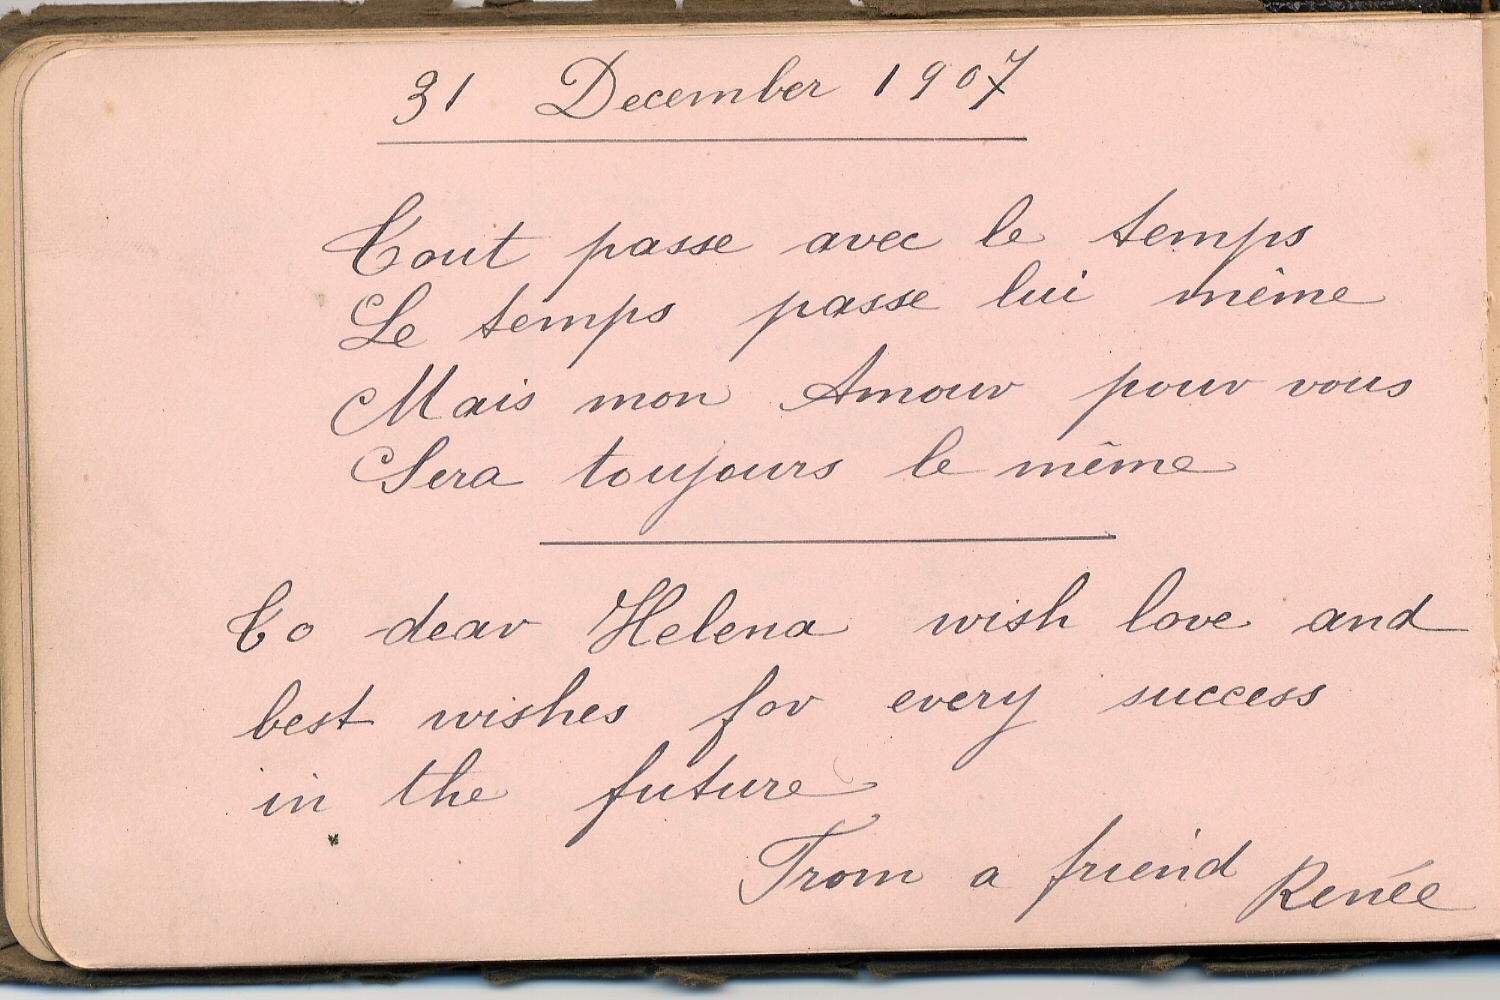 31 December 1907
Tout passe avec le temps
Le temps passe lui même
Mais mon Amour pour vous
Sera toujours le même
To dear Helena wish love and
best wishes for every success
in the future
From a friend Renée